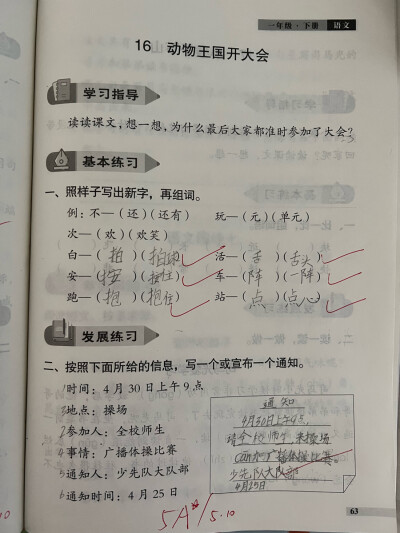 一年级·下册 语文
16 动物王国开大会
学习指导
读读课文,想一想,为什么最后大家都准时参加了大会?
基本练习
一、照样子写出新字,再组词。
例:不—(还)(还有) 玩—(元)(单元)
次—(欢)(欢笑)
白—(拍)(拍球) 活—(舌)(舌头)
安—(按)(按住) 车—(阵)(一阵)
跑—(抱)(抱住) 站—(点)(点心)
发展练习
二、按照下面所给的信息,写一个或宣布一个通知。
1时间:4月30日上午9点
3地点:操场
2参加人:全校师生
4事情:广播体操比赛
5通知人:少先队大队部
6通知时间:4月25日
通知
4月30日上午9点,
请全校师生来操场
can加广播体操比赛。
少先队大队部
4月25日
5A* 5.10
63